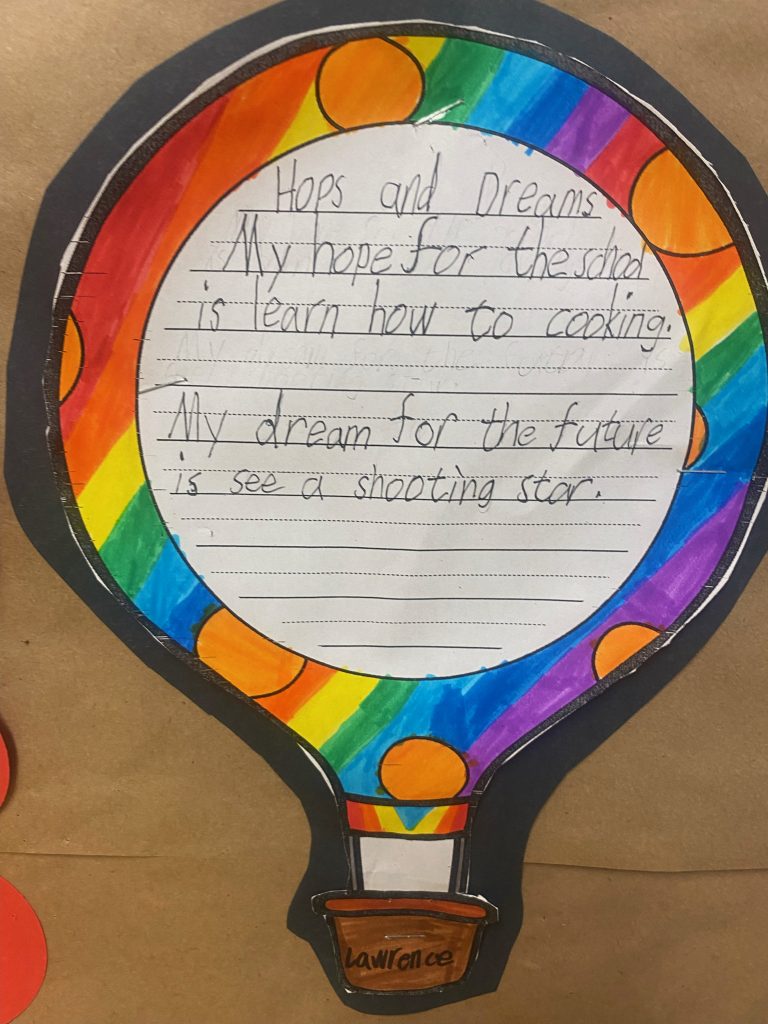 Hops and Dreams
My hope for the school
is learn how to cooking.
My dream for the future
is see a shooting star.
Lawrence